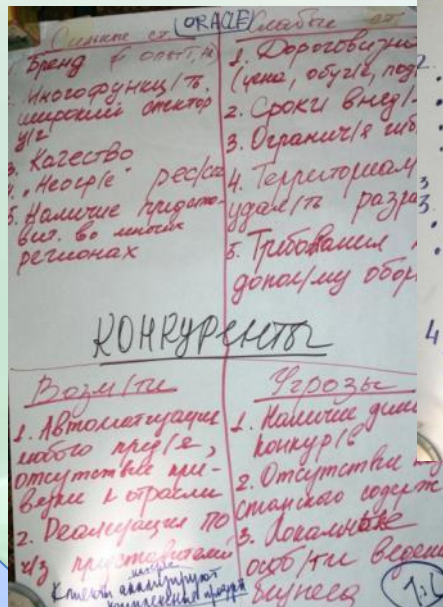 Сильные ст. ORACLE Слабые ст.
1. Бренд
2. Многофункц/ть,
широкий спектор
у/г
3. Качество
4. „Неогр/е" рес/сы
5. Наличие предста-
вит. во многих
регионах
1. Дороговизна
(цена, обуч/е, под
2. Сроки внед/
3. Огранич/я гиб
4. Территориал
удал/ть разра
5. Требования
допол/му обор
КОНКУРЕНТЫ
Возм/ти
1. Автоматизация
любого пред/я,
отсутствие при-
вязки к отрасли
2. Реализация ПО
ч/з представителей
Клиенты анализируют
Угрозы
1. Наличие
конкур/в
2. Отсутствие
станского содерж
3. Локальные
особ/ти веден
бизнеса
2.
3
3.
4